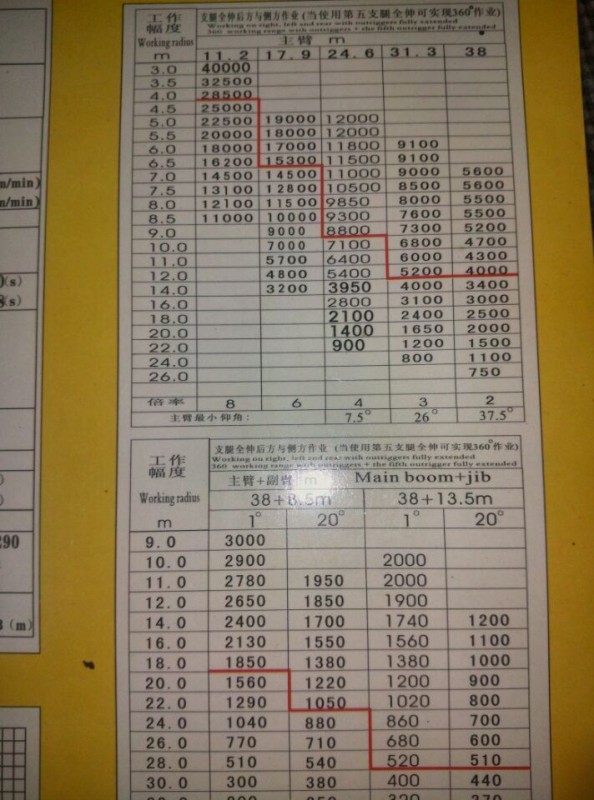 工作幅度
Working radius
m
支腿全伸后方与侧方作业(当使用第五支腿全伸可实现360°作业)
Working on right, left and rear with outriggers fully extended
360 working range with outriggers + the fifth outrigger fully extended
主臂 m
11.2 17.9 24.6 31.3 38
3.0 40000
3.5 32500
4.0 28500
4.5 25000
5.0 22500 19000 12000
5.5 20000 18000 12000
6.0 18000 17000 11800 9100
6.5 16200 15300 11500 9100
7.0 14500 14500 11000 9000 5600
7.5 13100 12800 10500 8500 5600
8.0 12100 11500 9850 8000 5500
8.5 11000 10000 9300 7600 5500
9.0 9000 8800 7300 5200
10.0 7000 7100 6800 4700
11.0 5700 6400 6000 4300
12.0 4800 5400 5200 4000
14.0 3200 3950 4000 3400
16.0 2800 3100 3000
18.0 2100 2400 2500
20.0 1400 1650 2000
22.0 900 1200 1500
24.0 800 1100
26.0 750
倍率 8 6 4 3 2
主臂最小仰角: 7.5° 26° 37.5°
工作幅度
Working radius
m
支腿全伸后方与侧方作业(当使用第五支腿全伸可实现360°作业)
Working on right, left and rear with outriggers fully extended
360 working range with outriggers + the fifth outrigger fully extended
主臂+副臂 m Main boom+jib
38+8.5m 38+13.5m
1° 20° 1° 20°
9.0 3000
10.0 2900 2000
11.0 2780 1950 2000
12.0 2650 1850 1900
14.0 2400 1700 1740 1200
16.0 2130 1550 1560 1100
18.0 1850 1380 1380 1000
20.0 1560 1220 1200 900
22.0 1290 1050 1020 800
24.0 1040 880 860 700
26.0 770 710 680 600
28.0 510 540 520 510
30.0 300 380 400 440
m/min)
m/min)
(s)
(s)
290
(m)